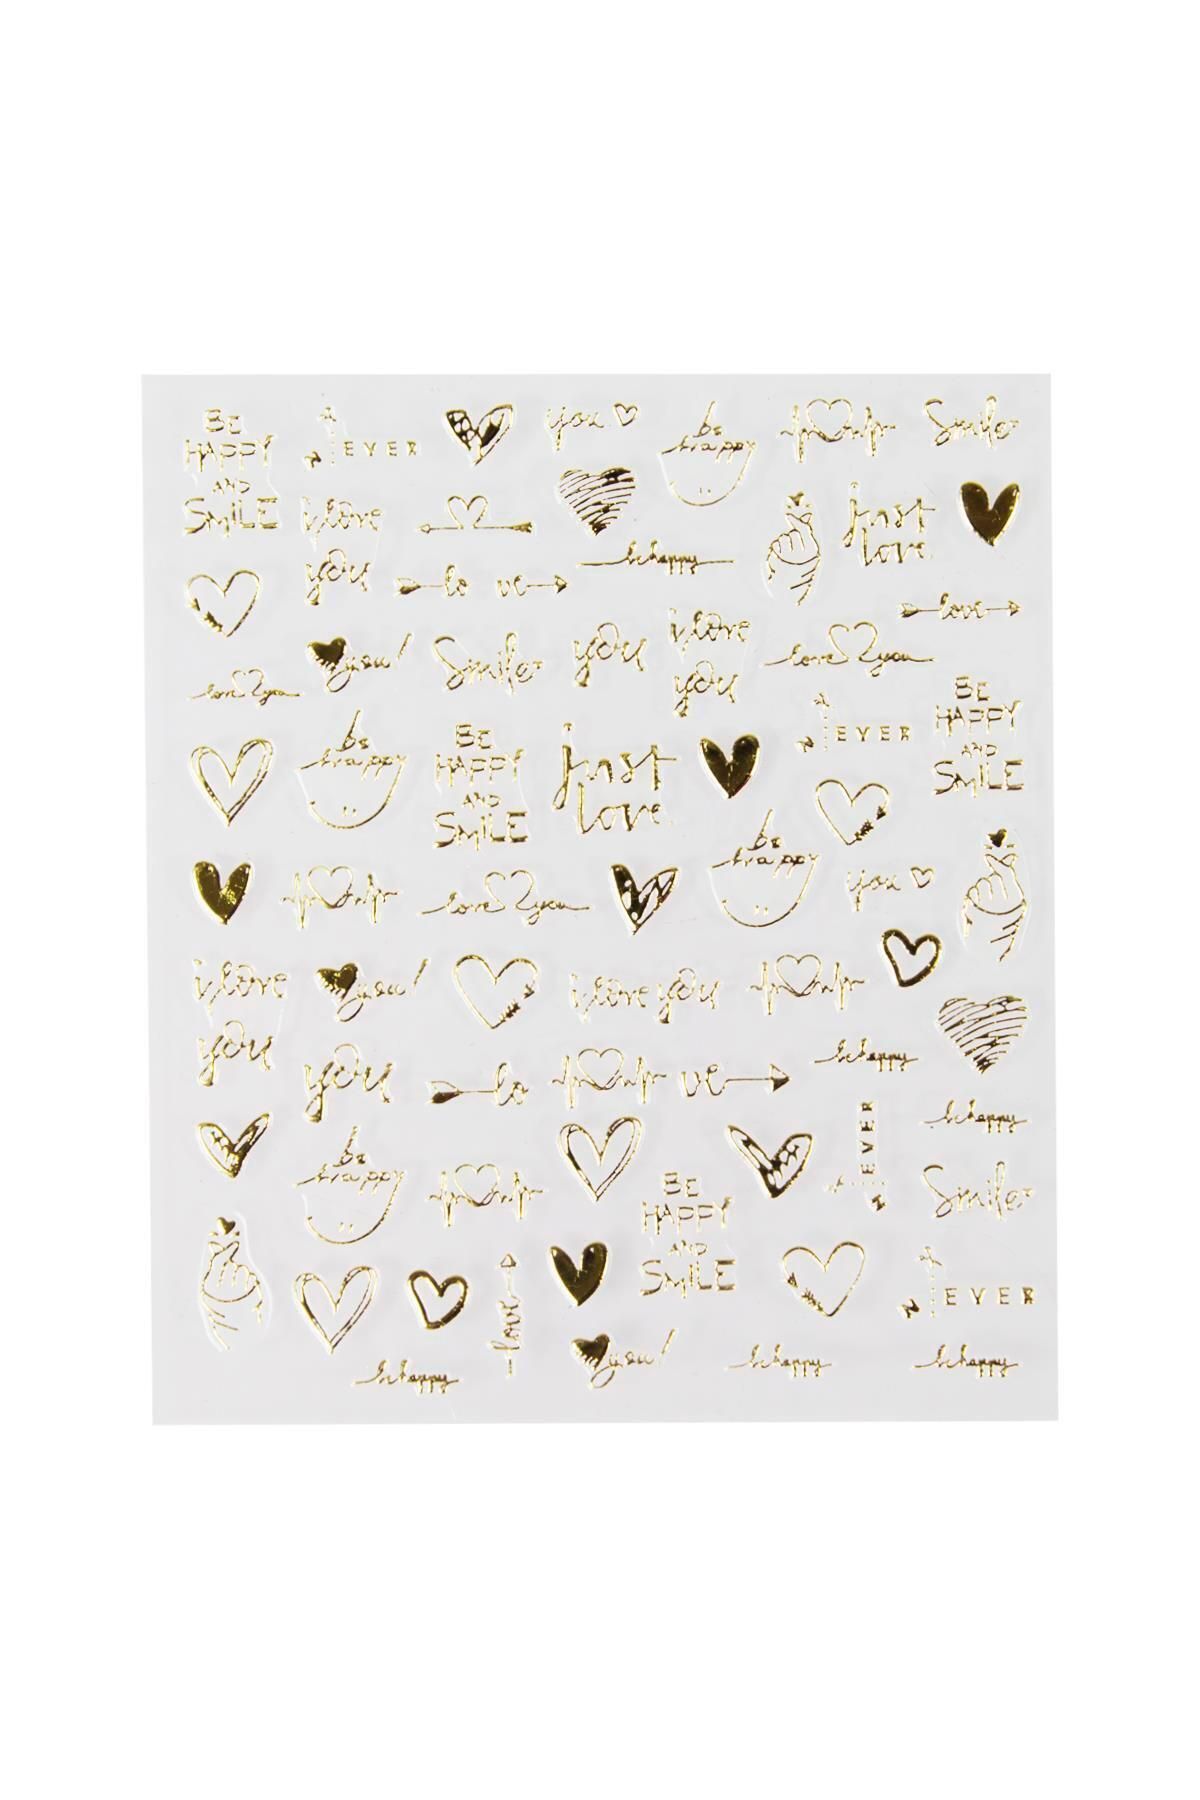 BE
HAPPY
AND
SMILE
N EVER
you
be
happy
Smile
i love
you
just
love
be happy
lo ve
love
you!
Smile
you
i love
you
love you
love you
BE
HAPPY
AND
SMILE
N EVER
be
happy
BE
HAPPY
AND
SMILE
just
love
be
happy
you
love you
i love
you
you!
i love you
be happy
you
lo ve
be happy
N EVER
be
happy
BE
HAPPY
AND
SMILE
Smile
N EVER
love
you!
be happy
be happy
be happy